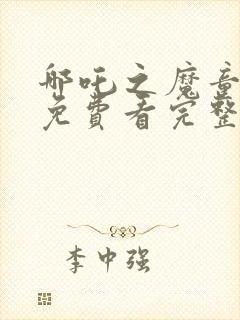 哪吒之魔童
免费看完整
李中强